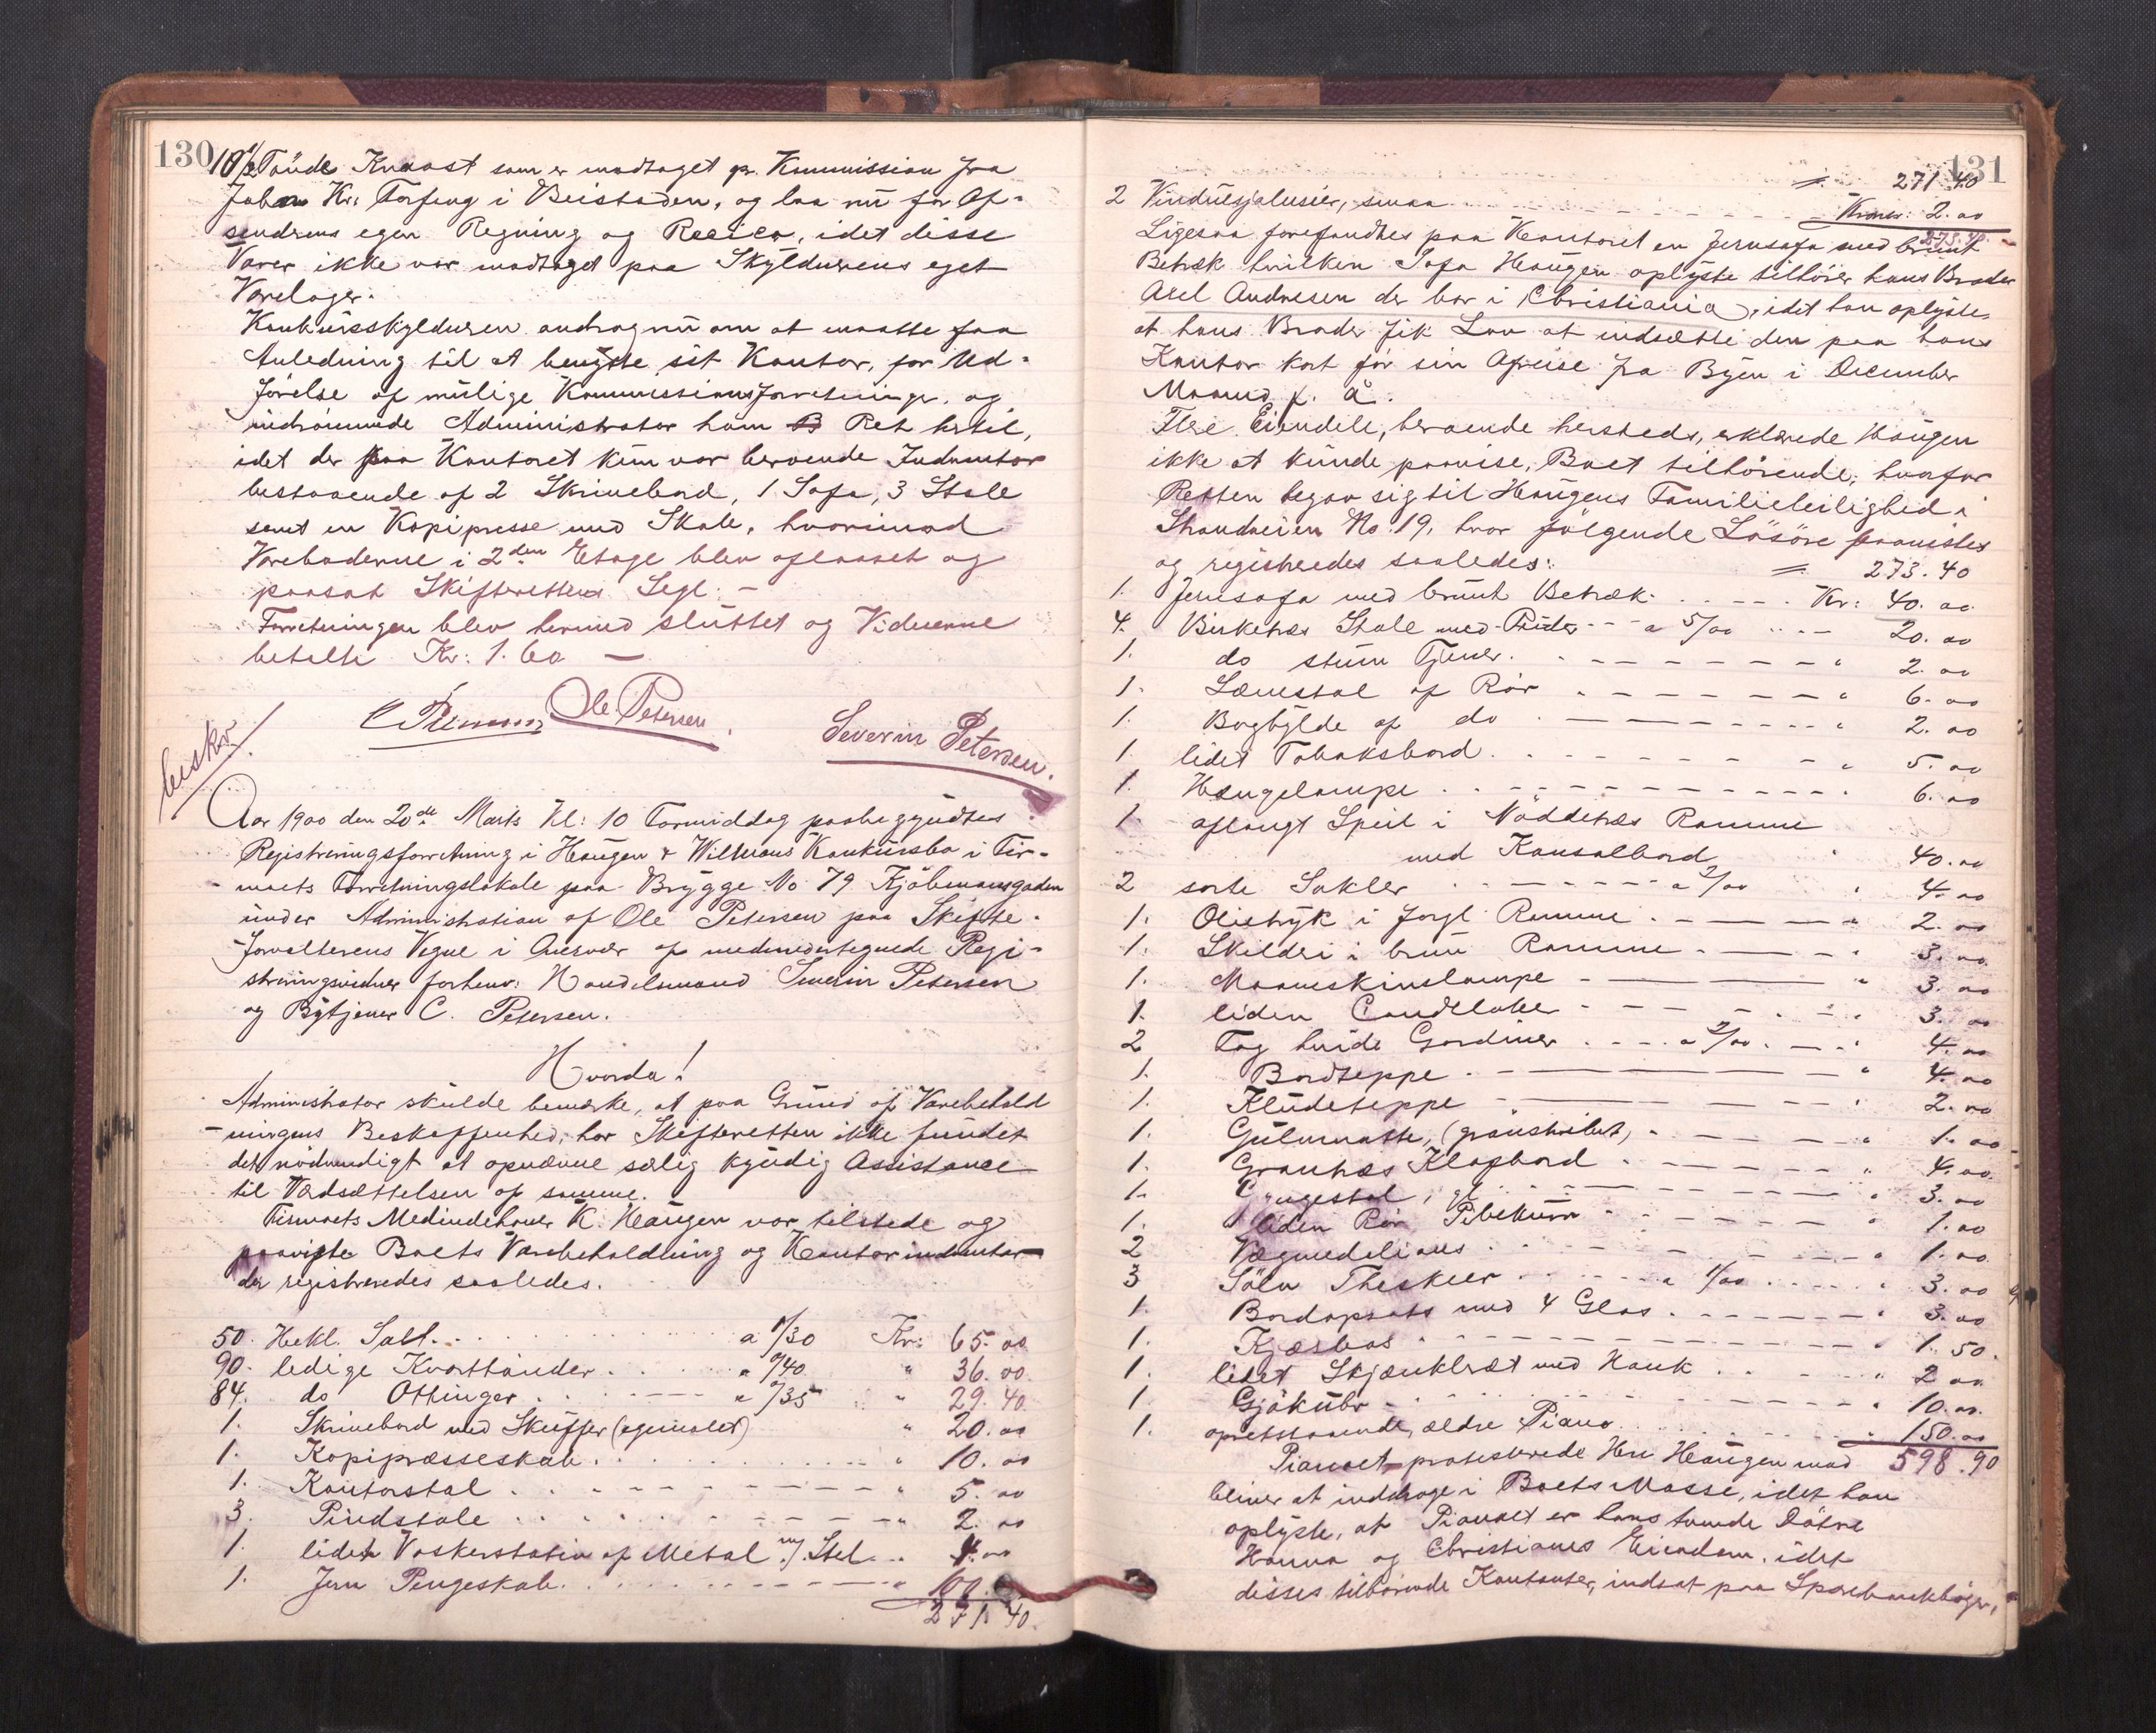 130
10 1/2 Tönde Knaast som er modtaget pr. Kommission fra
Johan Kr. Forfang i Beistaden, og laa nu for Af-
senderens egen Regning og Recico, idet disse
Varer ikke var modtaget paa Skyldnerens eget
Varelager.
Konkursskyldneren androg nu om at maatte faa
Anledning til at benytte sit Kontor, for Ud-
förelse af mulige Kommissionsforretninger, og
indrömmede Administrator ham Ret hertil,
idet der paa Kontoret kun var beroende Indventar
bestaaende af 2 Skrivebord, 1 Sofa, 3 Stole
samt en Kopipresse med Skab, hvorimod
Vareboderne i 2den Etage blev aflaaset og
paasat Skifterettens Segl. -
Forretningen blev hermed sluttet og Vidnerne
betalte Kr: 1.60 —
Ole Petersen
Severin Petersen.
beskr!
Aar 1900 den 20de Marts Kl: 10 Formiddag paabegyndtes
Registreringsforretning i Haugen & Konkursbo i Fir-
maets Forretningslokale paa Brygge No 79 Kjöbmansgaden
under Administration af Ole Petersen paa Skifte-
forvalterens Vegne i Overvær af medundertegnede Regi-
streringsvidner forhenv: Handelsmand Severin Petersen
og Bytjener C. Petersen.
Hvorda!
Administrator skulde bemærke, at paa Grund af Varebehold
ningens Beskaffenhed, har Skifteretten ikke fundet
det nödvendigt at opnævne særlig kyndig Assistance
til Værdsættelsen af samme.
Firmaets Medindehaver K. Haugen var tilstede og
paaviste Boets Varebeholdning og Kontorindventar
der registreredes saaledes.
50. Hekl. Salt. a 1/30 Kr: 65.00
90. ledige Kvarttönder. " 0/40 " 36.00.
84. do Ottinger. " 0/35 " 29.40
1. Skrivebord med Skuffer (egemalet) " 20.00
1. Kopipræsseskab. " 10.00
1. Kontorstol. " 5.00
3. Pindstole " 2.00
1. lidet Vaskerstativ af Metal m/. Stel. 4.00
1. Jern Pengeskab. " 100.
271.40.
131
271.40
2 Vindusjalusier, smaa Kroner: 2.00
273.40
Ligesaa forefandtes paa Kontoret en Jernsofa med brunt
Betræk hvilken Sofa Haugen oplyste tilhörer hans Broder
Axel Andresen der bor i Christiania, idet han oplyste,
at hans Broder fik Lov at indsætte den paa hans
Kontor kort för sin Afreise fra Byen i December
Maaned f. A.
Flere Eiendele, beroende hersteds, erklærede Haugen
ikke at kunde paavise, Boet tilhörende, hvorfor
Retten begav sig til Haugens Familieleilighed i
Strandveien No. 19, hvor fölgende Lösöre paavistes
og registreredes saaledes:
273.40
1. Jernsofa med brunt Betræk. Kr: 40.00
4. Birketræs Stole med Puder a 5/00 20.00
1. do stum Tjener. " 2.00
1. Lænestol af Rör " 6.00
1. Boghylde af do " 2.00
1. lidet Tobaksbord. " 5.00
1. Hængelampe 6.00
1. aflangt Speil i Nöddetræs Ramme
med Konsolbord " 40.00
2 sorte Sokler a 2/00 " 4.00
1. Olietryk i forgl. Ramme. " 2.00
1. Skilderi i brun Ramme " 3.00
1. Maaneskinslampe " 3.00
1. liden Candelaber " 3.00
2 Fag hvide Gardiner a 2/00. " 4.00
1. Bordteppe. " 4.00
1. Kludeteppe " 2.00
1. Gulvmatte, " 1.00
1. Grantræs Klapbord " 4.00
1. Gyngestol, 3.00
1. liden Rör Pibekurv " 1.00
2 Vægmedelions " 1.00
3 Sölv Theskeer a 1/00 " 3.00
1. Bordopsats med 4 Glas. " 3.00
1. 1.50.
1. lidet Skjænkbræt med Hank " 2.00
1. Gjökuhr " 10.00.
1. opretstaaende, ældre Piano 150.00
Pianoet protesterede Hr. Haugen mod 598.90
bliver at inddrage i Boets Masse, idet han
oplyste, at Pianoet er hans tvende Dötre
Hanna og Christianes Eiendom, idet
disses tilhörende Kontanter, indsat paa Sparebankböger,